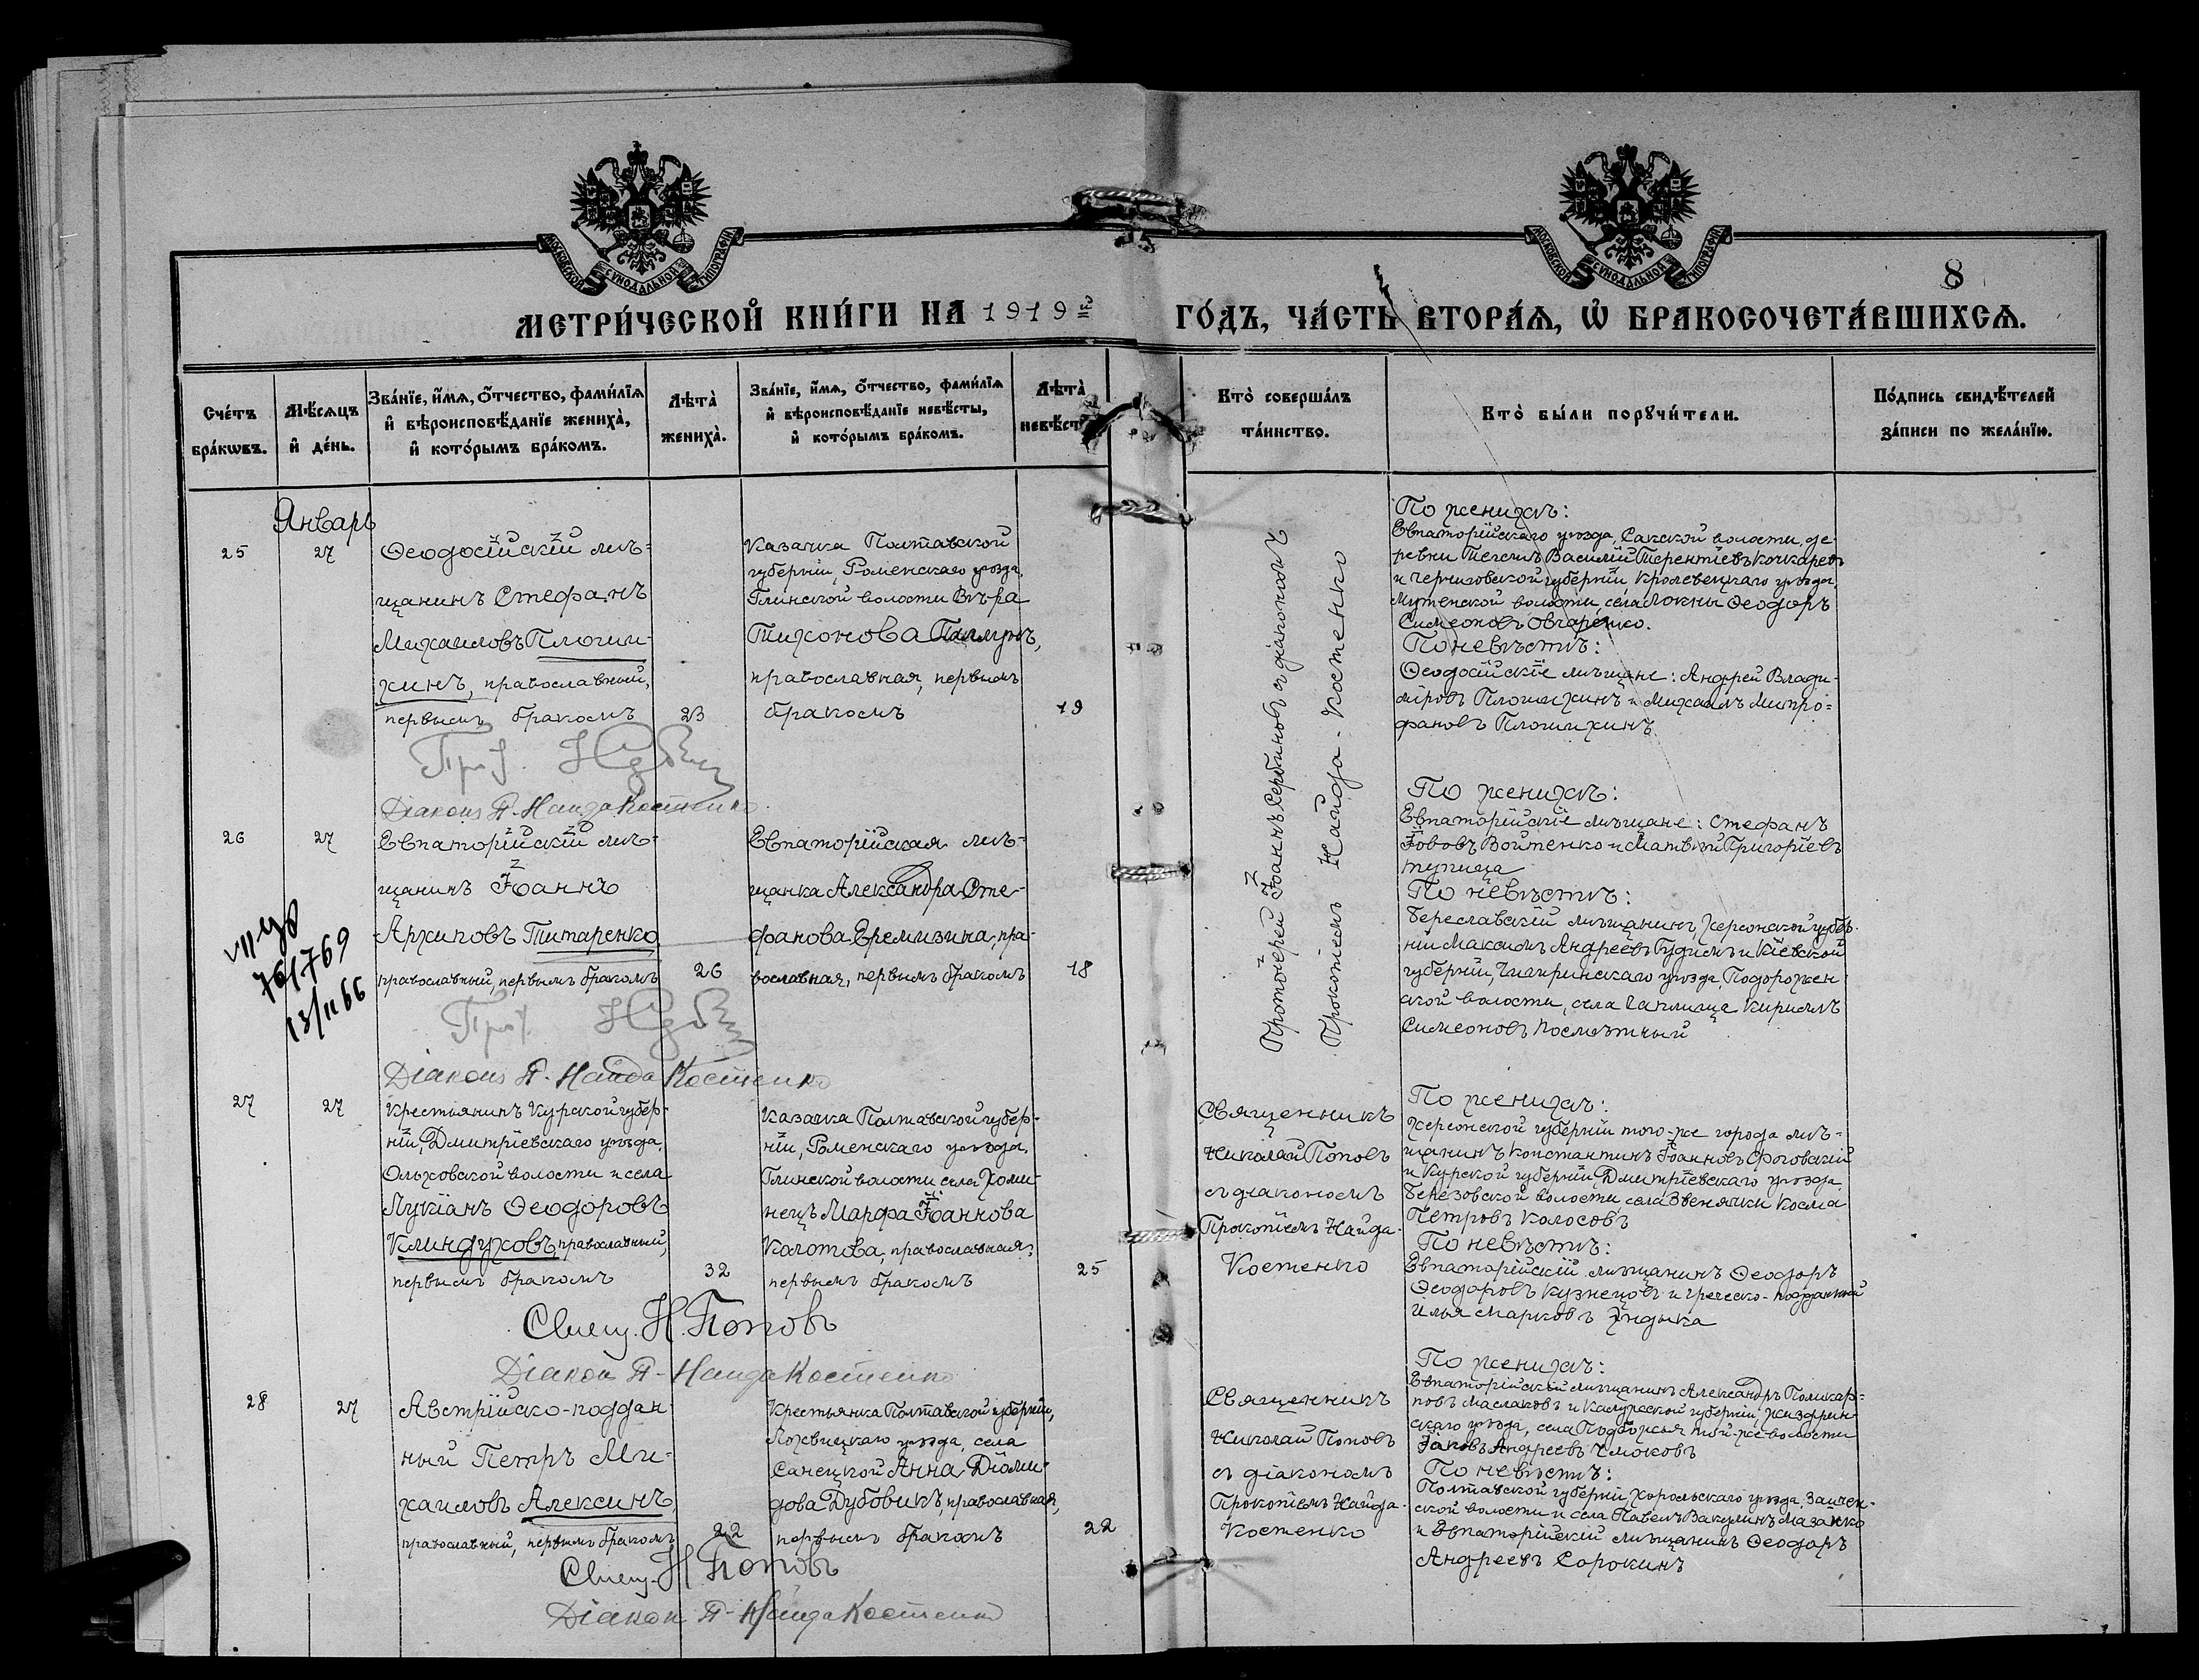 МОСКОВСКОЙ СѴНОДАЛЬНОЙ ТИПОГРАФІИ
МОСКОВСКОЙ СѴНОДАЛЬНОЙ ТИПОГРАФІИ
8
МЕТРИ́ЧЕСКОЙ КНИ́ГИ НА 1919й
ГО́ДЪ, ЧА́СТЬ ВТОРА́Ѧ, Ѽ БРАКОСОЧЕТА́ВШИХСѦ.
Сче́тъ бра́кѡвъ.
Мѣ́сѧцъ и҆ де́нь.
Зва́нїе, и҆́мѧ, ѻ҆́тчество, фами́лїѧ
и҆ вѣроисповѣ́данїе жениха̀,
и҆ кото́рымъ бра́комъ.
Лѣта̀ жениха̀.
Зва́нїе, и҆́мѧ, ѻ҆́тчество, фами́лїѧ
и҆ вѣроисповѣ́данїе невѣ́сты,
и҆ кото́рымъ бра́комъ.
Лѣта̀ невѣ́ст
Кто̀ соверша́лъ
та́инство.
Кто̀ бы́ли порꙋчи́тели.
По́дпись свидѣ́телей
за́писи по жела́нїю.
Январь
25
27
Ѳеодосійскій мѣ-
щанинъ Стефанъ
Михаиловъ Плоши-
хинъ, православный,
первымъ бракомъ
23
Казачка Полтавской
губерніи, Роменскаго уѣзда,
Глинской волости Вѣра
Тихонова
православная, первымъ
бракомъ
19
Протоіерей Іоаннъ Сербиновъ съ діакономъ
Прокопіемъ Найда-Костенко
По женихѣ:
Евпаторійскаго уѣзда, Сакской волости, де-
ревни Василій Терентіевъ Кочкаревъ
и Черниговской губерніи Кролевецкаго уѣзда,
волости, села Локни Ѳеодоръ
Симеоновъ Овчаренко.
По невѣстѣ:
Ѳеодосійскіе мѣщане: Андрей Влади-
міровъ Плошихинъ и Михаилъ Митро-
фановъ Плошихинъ.
Прот.
Діаконъ П. Найда Костенко
26
27
Евпаторійскій мѣ-
щанинъ Іоаннъ
Архиповъ Титаренко
православный, первымъ бракомъ
26
Евпаторійская мѣ-
щанка Александра Сте-
фанова Еремизина, пра-
вославная, первымъ бракомъ
18
По женихѣ:
Евпаторійскіе мѣщане: Стефанъ
Іововъ Войтенко и Матвѣй Григоріевъ
тупица
По невѣстѣ:
Береславскій мѣщанинъ, Херсонской губер-
ніи Максимъ Андреевъ Гудимъ и Кіевской
губерніи, Чигиринскаго уѣзда, Подорожен
ской волости, села Саплище Кириллъ
Симеоновъ Посмѣтный
VII
76/769
13/II 66
Прот.
Діаконъ П. Найда Костенко
27
27
Крестьянинъ Курской губер-
ніи, Дмитріевскаго уѣзда,
Ольховской волости и села
Лукіанъ Ѳеодоровъ
Клиндуховъ православный,
первымъ бракомъ
32
Казачка Полтавской губер-
ніи, Роменскаго уѣзда,
Глинской волости села Хоми-
нецъ Марфа Іоаннова
Колотова, православная,
первымъ бракомъ
25
Священникъ
Николай Поповъ
съ діакономъ
Прокопіемъ Найда-
Костенко
По женихѣ:
Херсонской губерніи того-же города мѣ-
щанинъ Константинъ Іоанновъ
и Курской губерніи, Дмитріевскаго уѣзда
Березовской волости села Звенячки Косма
Петровъ Колосовъ
По невѣстѣ:
Евпаторійскій мѣщанинъ Ѳеодоръ
Ѳеодоровъ Кузнецовъ и греческо-подданный
Илья Марковъ
Свящ. Н. Поповъ
Діакон П. Найда Костенко
28
27
Австрійско-поддан
ный Петръ Ми-
хаиловъ Алексинъ,
православный, первымъ бракомъ
22
Крестьянка Полтавской губерніи,
Лохвицкаго уѣзда, села
Санецкой Анна Діоми-
дова Дубовикъ, православная,
первымъ бракомъ
22
Священникъ
Николай Поповъ
съ діакономъ
Прокопіемъ Найда-
Костенко
По женихѣ:
Евпаторійскій мѣщанинъ Александръ Поликар-
повъ Маслаковъ и Калужской губерніи, Жиздрин-
скаго уѣзда, села Подбужья той-же волости
Іаковъ Андреевъ Чмоковъ
По невѣстѣ:
Полтавской губерніи, Хорольскаго уѣзда, Зайчен-
ской волости и села Павелъ Вакулинъ Мазанко
и Евпаторійскій мѣщанинъ Ѳеодоръ
Андреевъ Сорокинъ
Свящ. Н Поповъ
Діакон П. Найда Костенко